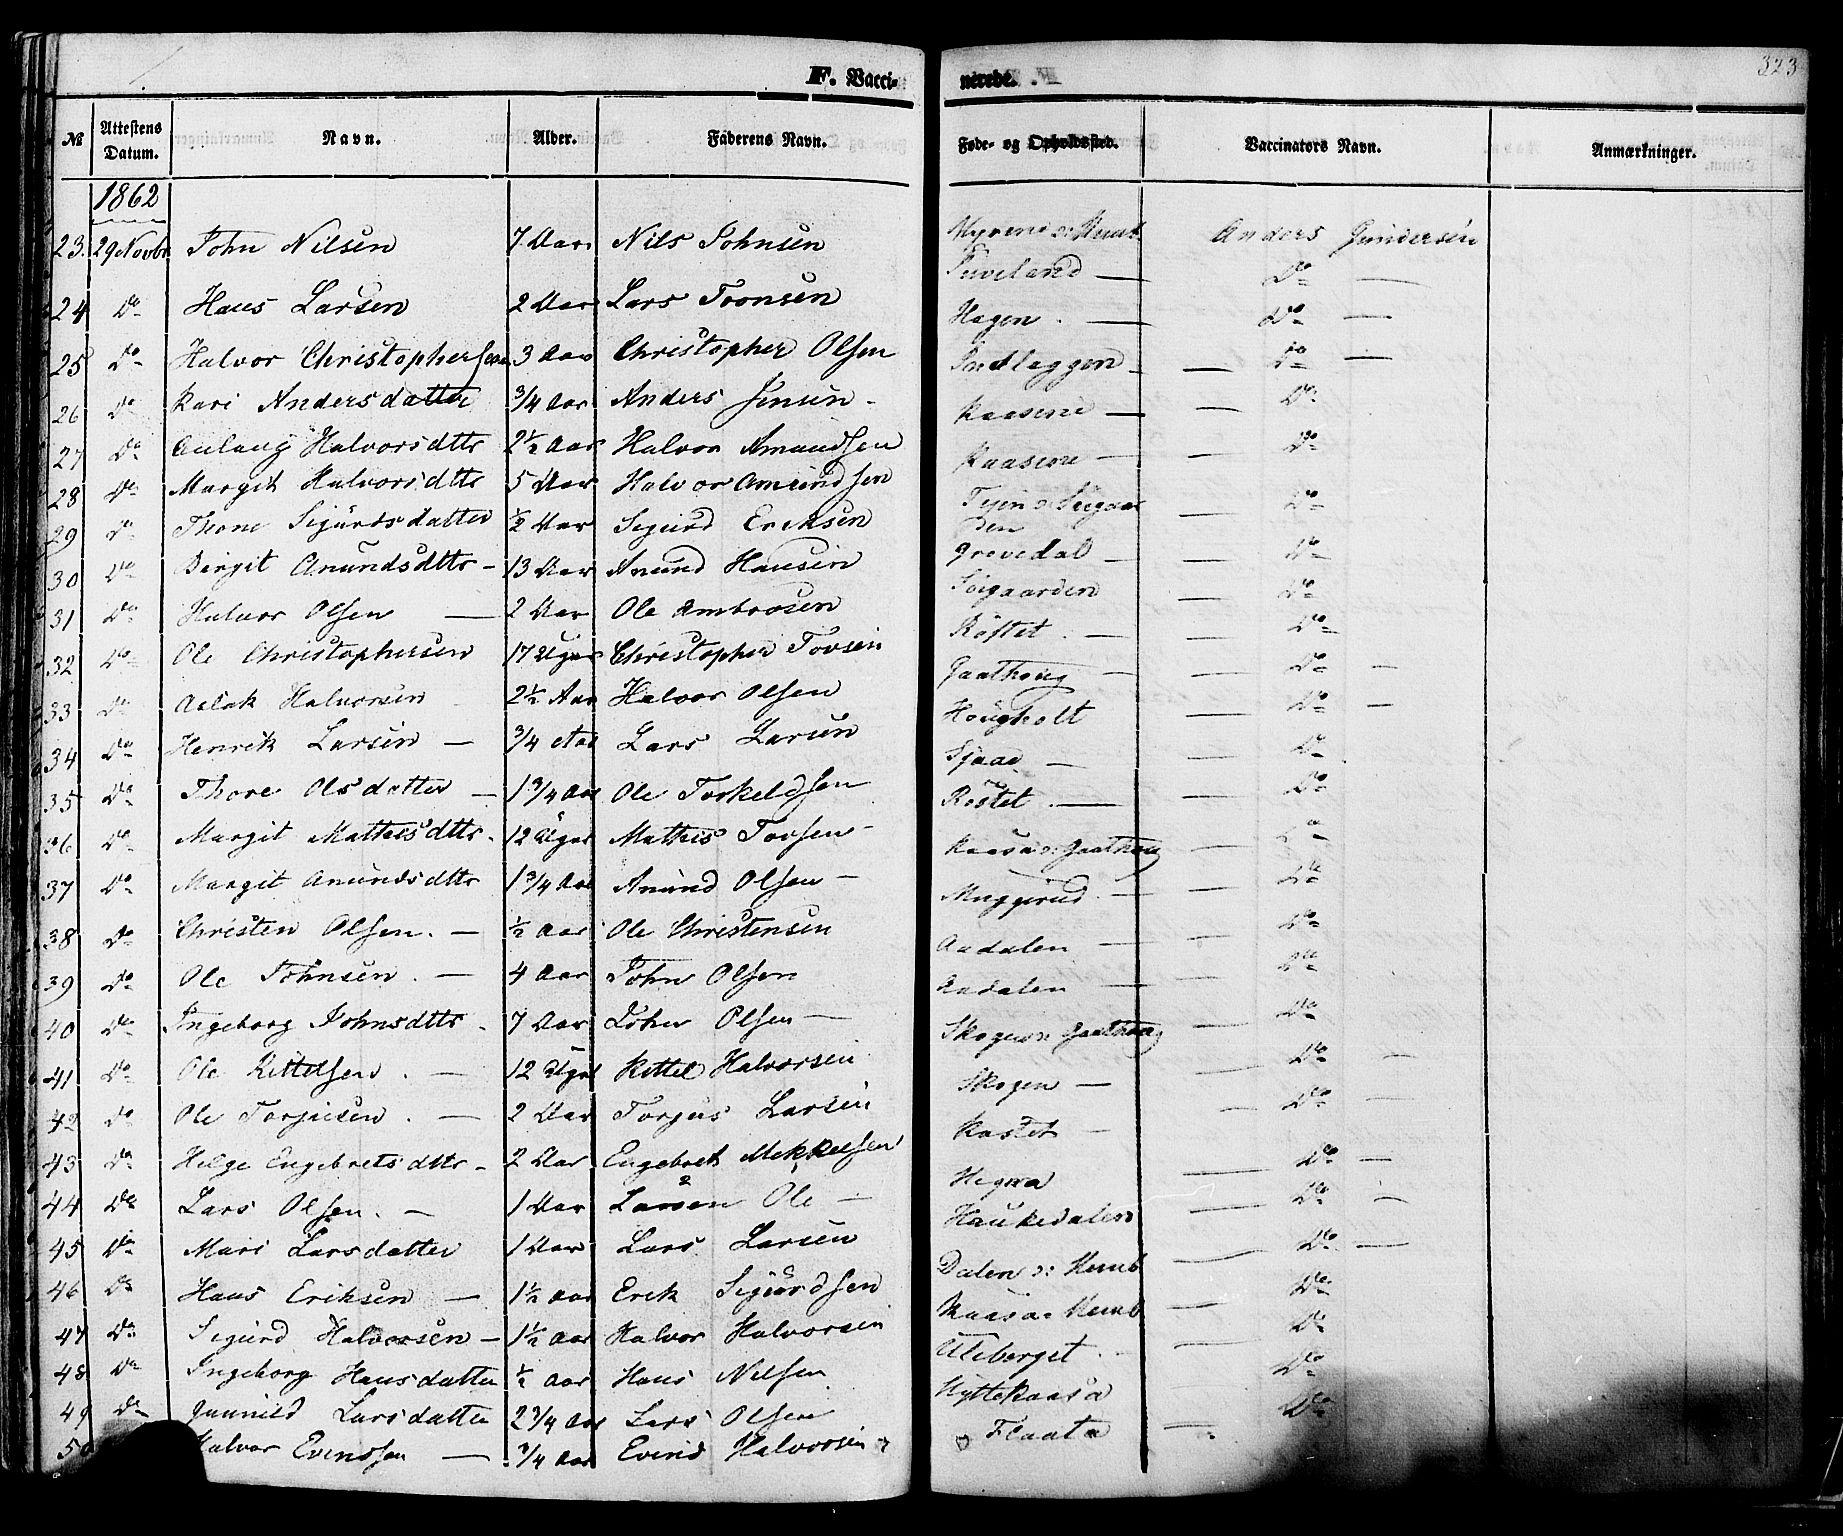 F. Vacci- nerede. 323
№ Attestens Datum. Navn. Alder. Faderens Navn. Føde- og Opholdssted. Vaccinators Navn. Anmærkninger.
1862
23. 29 Novbr John Nilsen 7 Aar Nils Johnsen Anders Gundersen
24 Do Hans Larsen 2 Aar Lars Tovsen Tuveland — Do —
25 Do Halvor Christophersen 3 Aar Christopher Olsen Hagen . — Do —
26 Do Kari Andersdatter 3/4 Aar Anders Jensen - Indlaggen — Do —
27 Do Aulaug Halvorsdttr 2½ Aar Halvor Amundsen Kaasene — Do
28 Do Margit Halvorsdttr 5 Aar Halvor Amundsen Kaasene — Do
29 Do Thone Sigurdsdatter ½ Aar Sigurd Eriksen — Do
30 Do Birgit Anundsdttr - 13 Aar Anund Hansen Grevedal — Do
31 Do Halvor Olsen — 2 Aar Ole Ambrosen Søigaarden — Do
32 Do Ole Christophersen 17 Uger Christopher Tovsen Røstet . — Do
33 Do Aslak Halvorsen 2½ Aar Halvor Olsen Gaathoug — Do —
34 Do Henrik Larsen — 3/4 Aar Lars Larsen Hougholt — Do —
35 Do Thore Olsdatter — 1 3/4 Aar Ole Torkeldsen — Do
36 Do Margit Mathisdttr. 12 Uger Mathis Tovsen - Røstet . — Do
37 Do Margit Anundsdttr 1 3/4 Aar Anund Olsen - Kaasa o: Gaathoug — Do
38 Do Christen Olsen. — ½ Aar Ole Christensen Muggerud — Do
39 Do Ole Johnsen . — 4 Aar John Olsen Aadalen — Do
40 Do Ingeborg Johnsdttr - 7 Aar John Olsen — Aadalen — Do
41 Do Ole Kittelsen . — 12 Uger Kittel Halvorsen Skogen o: Gaathoug — Do
42 Do Ole Torjusen . — 2 Aar Torjus Larsen Skogen — Do —
43 Do Helge Engebretsdttr - 2 Aar Engebret Mikkelsen Rostet — Do —
44 Do Lars Olsen. — 1 Aar Larsen Ole — Hegna — Do —
45 Do Mari Larsdatter 1 Aar Lars Larsen Haukedalen — Do —
46 Do Hans Eriksen — 1½ Aar Erik Sigurdsen Dalen o: Hemb — Do —
47 Do Sigurd Halvorsen — 1½ Aar Halvor Halvorsen Kaasa o: Hemb — Do
48 Do Ingeborg Hansdatter ½ Aar Hans Nilsen Uleberget . — Do
49 Do Gunnild Larsdatter 2 3/4 Aar Lars Olsen Hyttekaasa — Do
50 Halvor Evindsen — 3/4 Aar Evind Halvorsen Flaata — Do